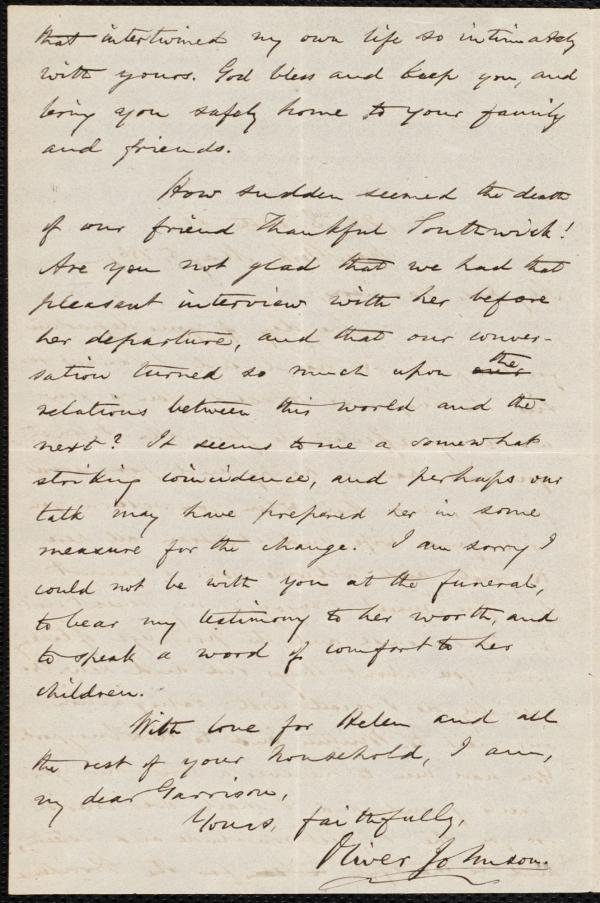 that intertwined my own life so intimately
with yours. God bless and keep you, and
bring you safely home to your family
and friends.
How sudden seemed the death
of our friend Thankful Southwick!
Are you not glad that we had that
pleasant interview with her before
her departure, and that our conver-
sation turned so much upon the
relations between this world and the
next? It seems to me a somewhat
striking coincidence, and perhaps our
talk may have prepared her in some
measure for the change. I am sorry I
could not be with you at the funeral,
to bear my testimony to her worth, and
to speak a word of comfort to her
children.
With love for Helen and all
the rest of your household, I am,
my dear Garrison,
Yours, faithfully,
Oliver Johnson.